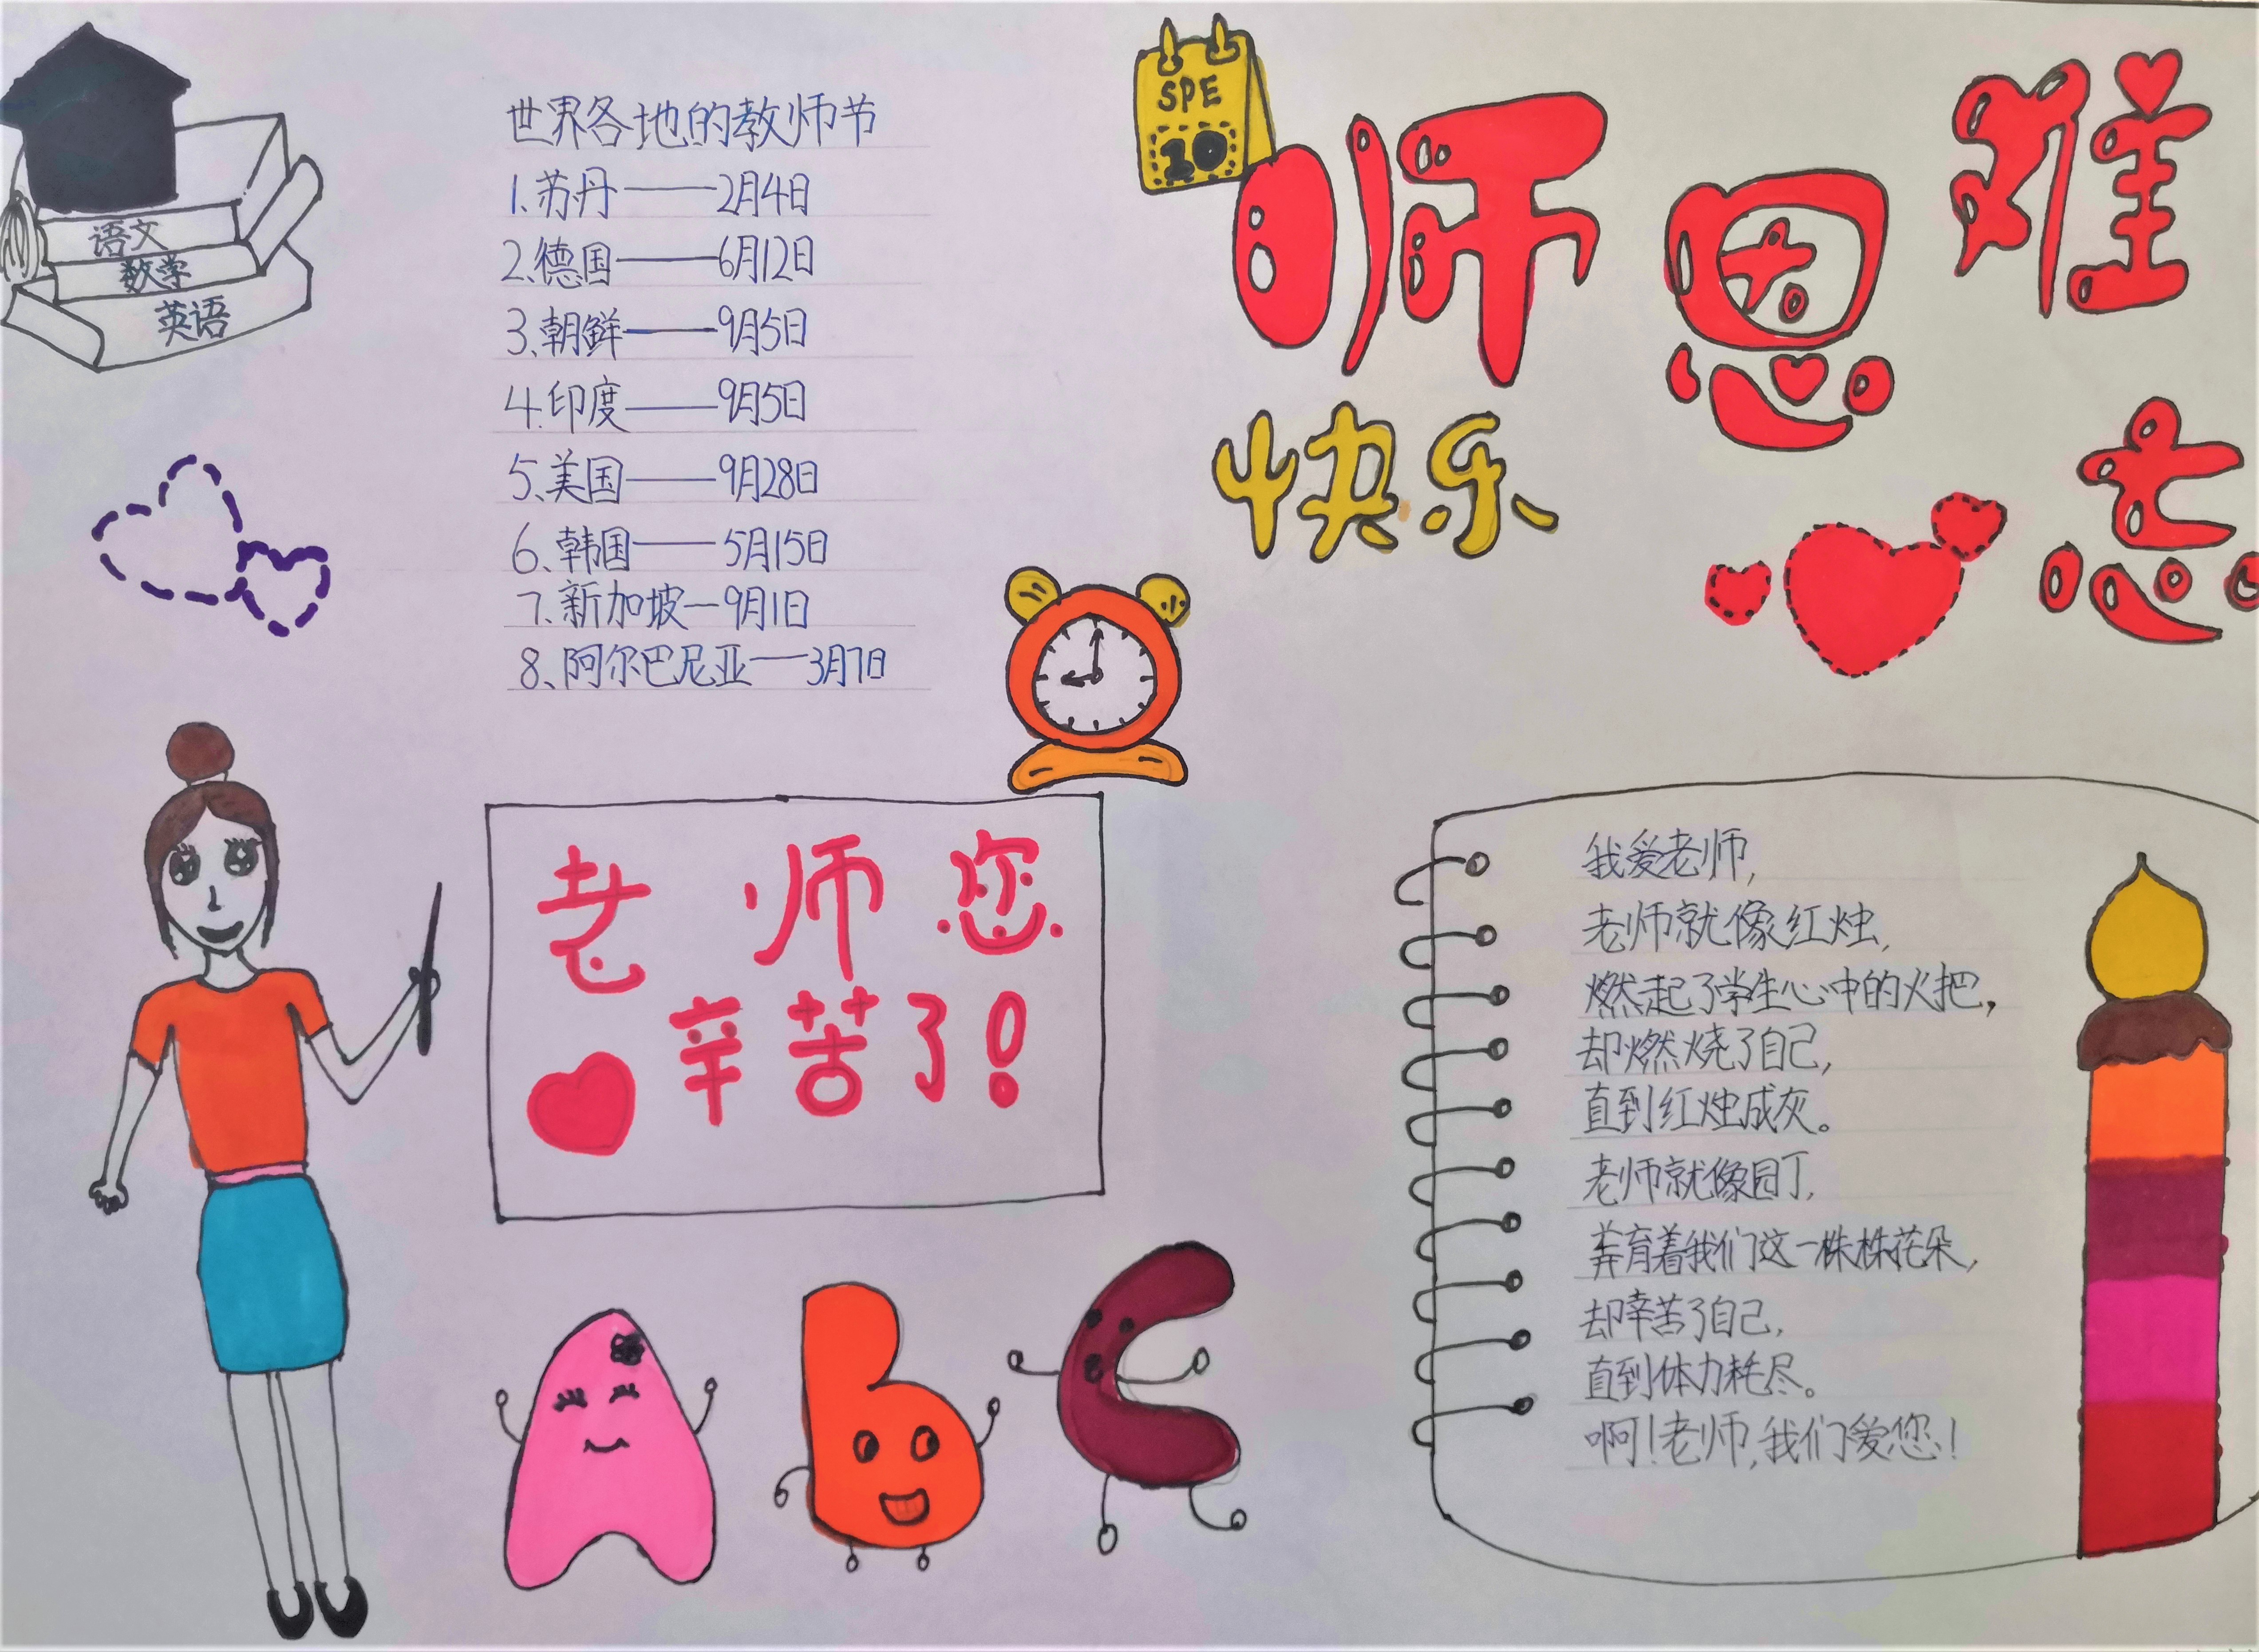 语文
数学
英语
世界各地的教师节
1.苏丹——2月4日
2.德国——6月12日
3、朝鲜——9月5日
4.印度——9月5日
5、美国——9月28日
6、韩国——5月15日
7.新加坡—9月1日
8、阿尔巴尼亚——3月7日
SPE
10
师恩难
忘
快乐
老师您
辛苦了!
我爱老师,
老师就像红烛,
燃起了学生心中的火把,
却燃烧了自己,
直到红烛成灰。
老师就像园丁,
育着我们这一株株花朵,
却辛苦了自己,
直到体力耗尽。
啊!老师,我们爱您!
A b c